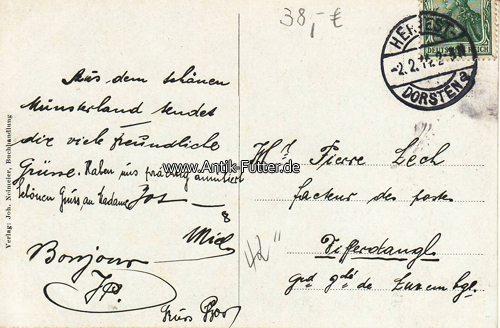 38,- €
HERVEST-
-2.2.12 2-3N
DORSTEN a
DEUTSCHES REICH
Aus dem schönen
Münsterland sendet
dir viel freundliche
Grüsse. Haben uns amüsiert
Schönen Gruss an Madame Jos
Mich
Bonjour
JP.
Gruss
Verlag: Joh. Buchhandlung
www.Antik-Futter.de
Hr. Pierre Lech
facteur des postes
Differdange
grd gdé de Luxembg.
42"